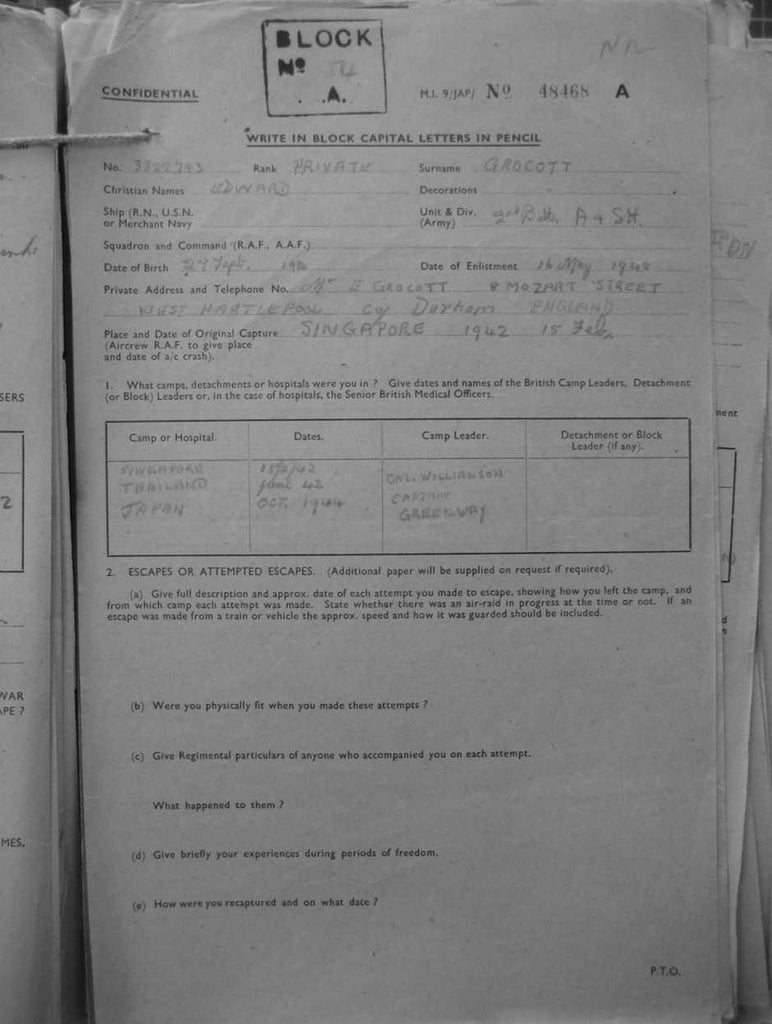 BLOCK
Nº 54
A.
CONFIDENTIAL
M.I. 9/JAP/ Nº 48468 A
WRITE IN BLOCK CAPITAL LETTERS IN PENCIL
No. Rank PRIVATE Surname GROCOTT
Christian Names EDWARD Decorations
Ship (R.N., U.S.N. Unit & Div. 2nd Batt. A & SH.
or Merchant Navy (Army)
Squadron and Command (R.A.F., A.A.F.)
Date of Birth 27 Sept. Date of Enlistment 16 May 1940
Private Address and Telephone No. E GROCOTT 8 MOZART STREET
WEST HARTLEPOOL Cy Dorham ENGLAND
Place and Date of Original Capture SINGAPORE 1942 15 Feb,
(Aircrew R.A.F. to give place
and date of a/c crash).
1. What camps, detachments or hospitals were you in ? Give dates and names of the British Camp Leaders, Detachment
(or Block) Leaders or, in the case of hospitals, the Senior British Medical Officers.
Camp or Hospital. Dates. Camp Leader. Detachment or Block
Leader (if any).
SINGAPORE 15/2/42
THAILAND June 42 CNL. WILLIAMSON
JAPAN OCT. 1944 CAPTAIN
GREENWAY
2. ESCAPES OR ATTEMPTED ESCAPES. (Additional paper will be supplied on request if required).
(a) Give full description and approx. date of each attempt you made to escape, showing how you left the camp, and
from which camp each attempt was made. State whether there was an air-raid in progress at the time or not. If an
escape was made from a train or vehicle the approx. speed and how it was guarded should be included.
(b) Were you physically fit when you made these attempts ?
(c) Give Regimental particulars of anyone who accompanied you on each attempt.
What happened to them ?
(d) Give briefly your experiences during periods of freedom.
(e) How were you recaptured and on what date ?
P.T.O.